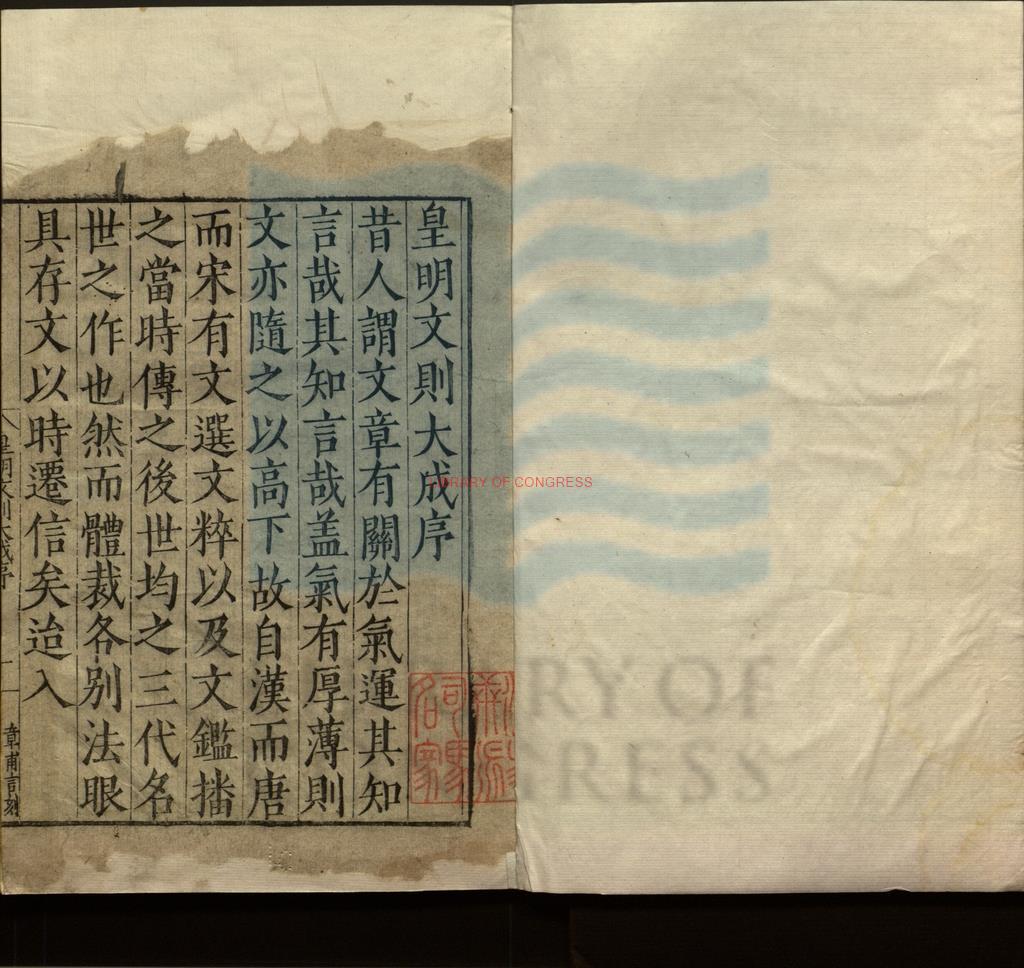 皇明文則大成序
昔人謂文章有關於氣運其知
言哉其知言哉盖氣有厚薄則
文亦隨之以高下故自漢而唐
而宋有文選文粹以及文鑑播
之當時傳之後世均之三代名
世之作也然而體裁各别法眼
具存文以時遷信矣迨入
皇明文則大成序
一
章甫言刻
LIBRARY OF CONGRESS
RY OF
GRESS